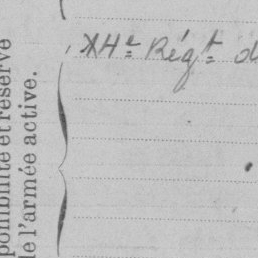 ponibilité et réserve
de l'armée active.
XHe Régt d